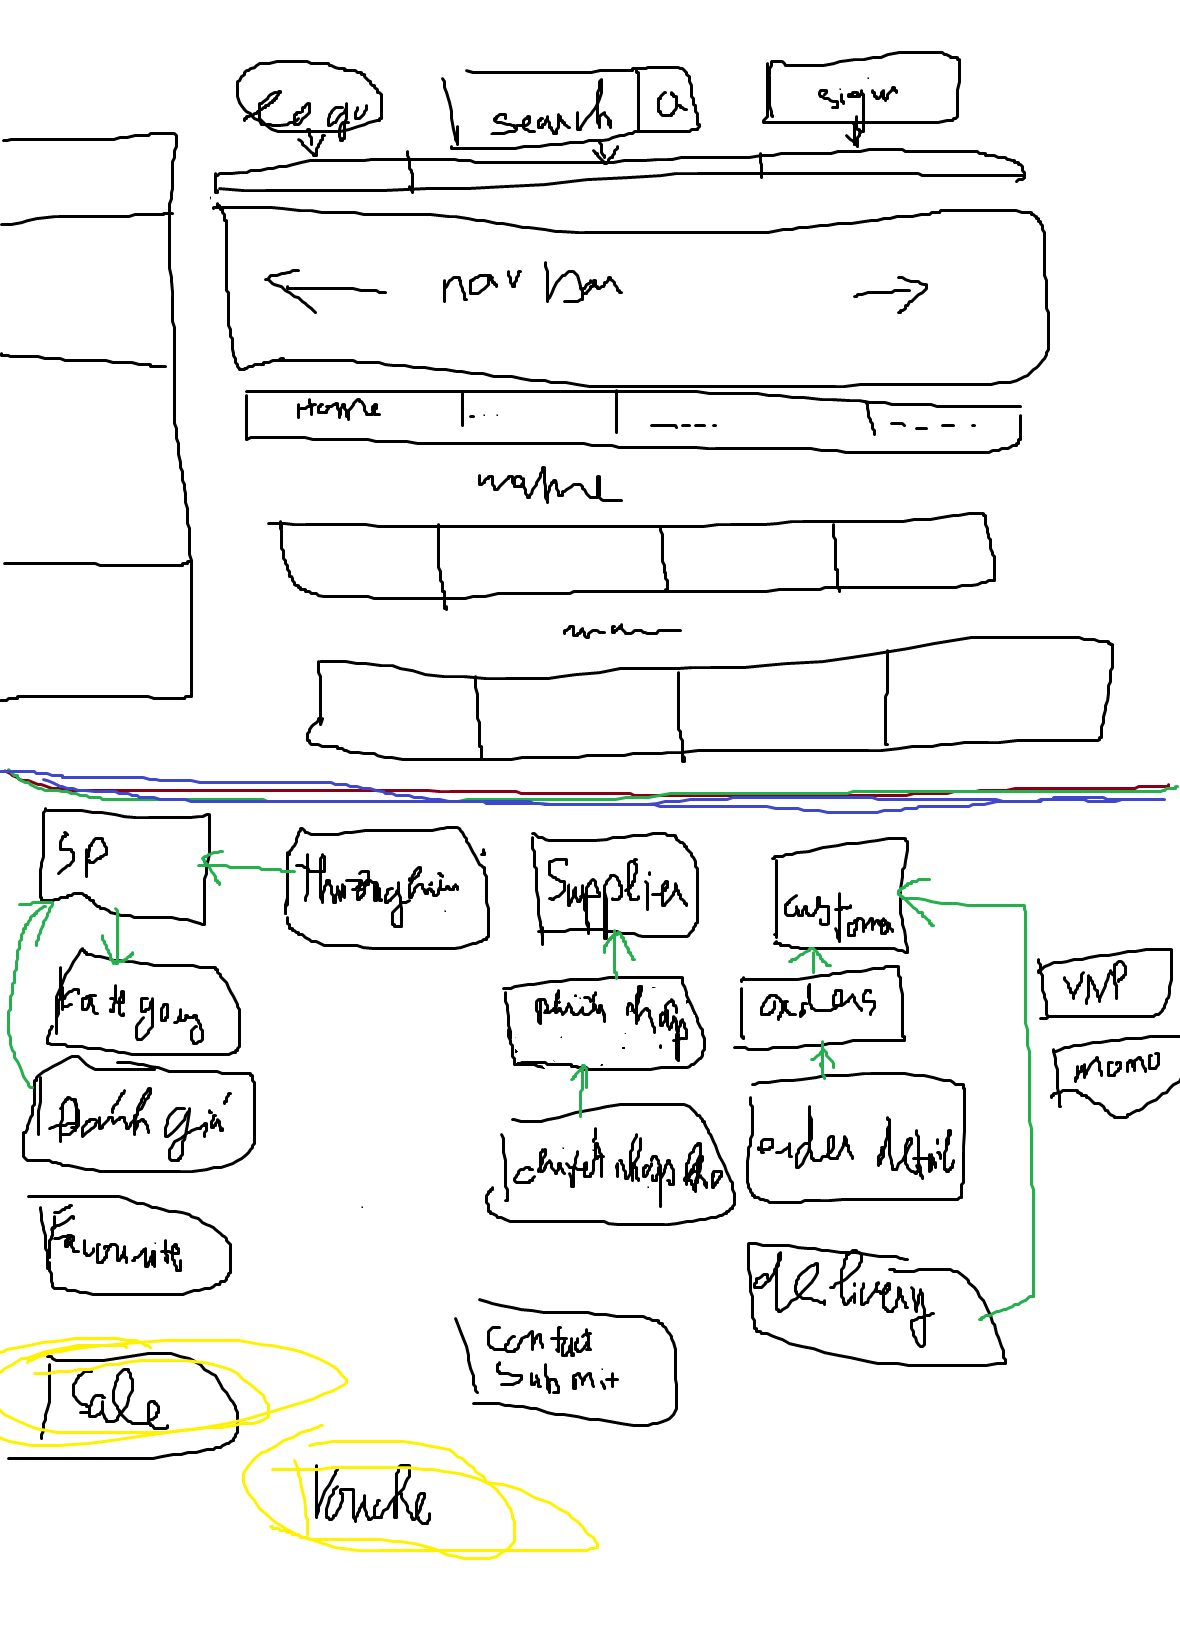 Logo
search
Q
nav bar
Home
SP
Thương hiệu
Supplier
customer
Kategory
phiếu nhập
orders
VNP
momo
Đánh giá
order detail
Favourite
delivery
Contact
Submit
Sale
Vouche